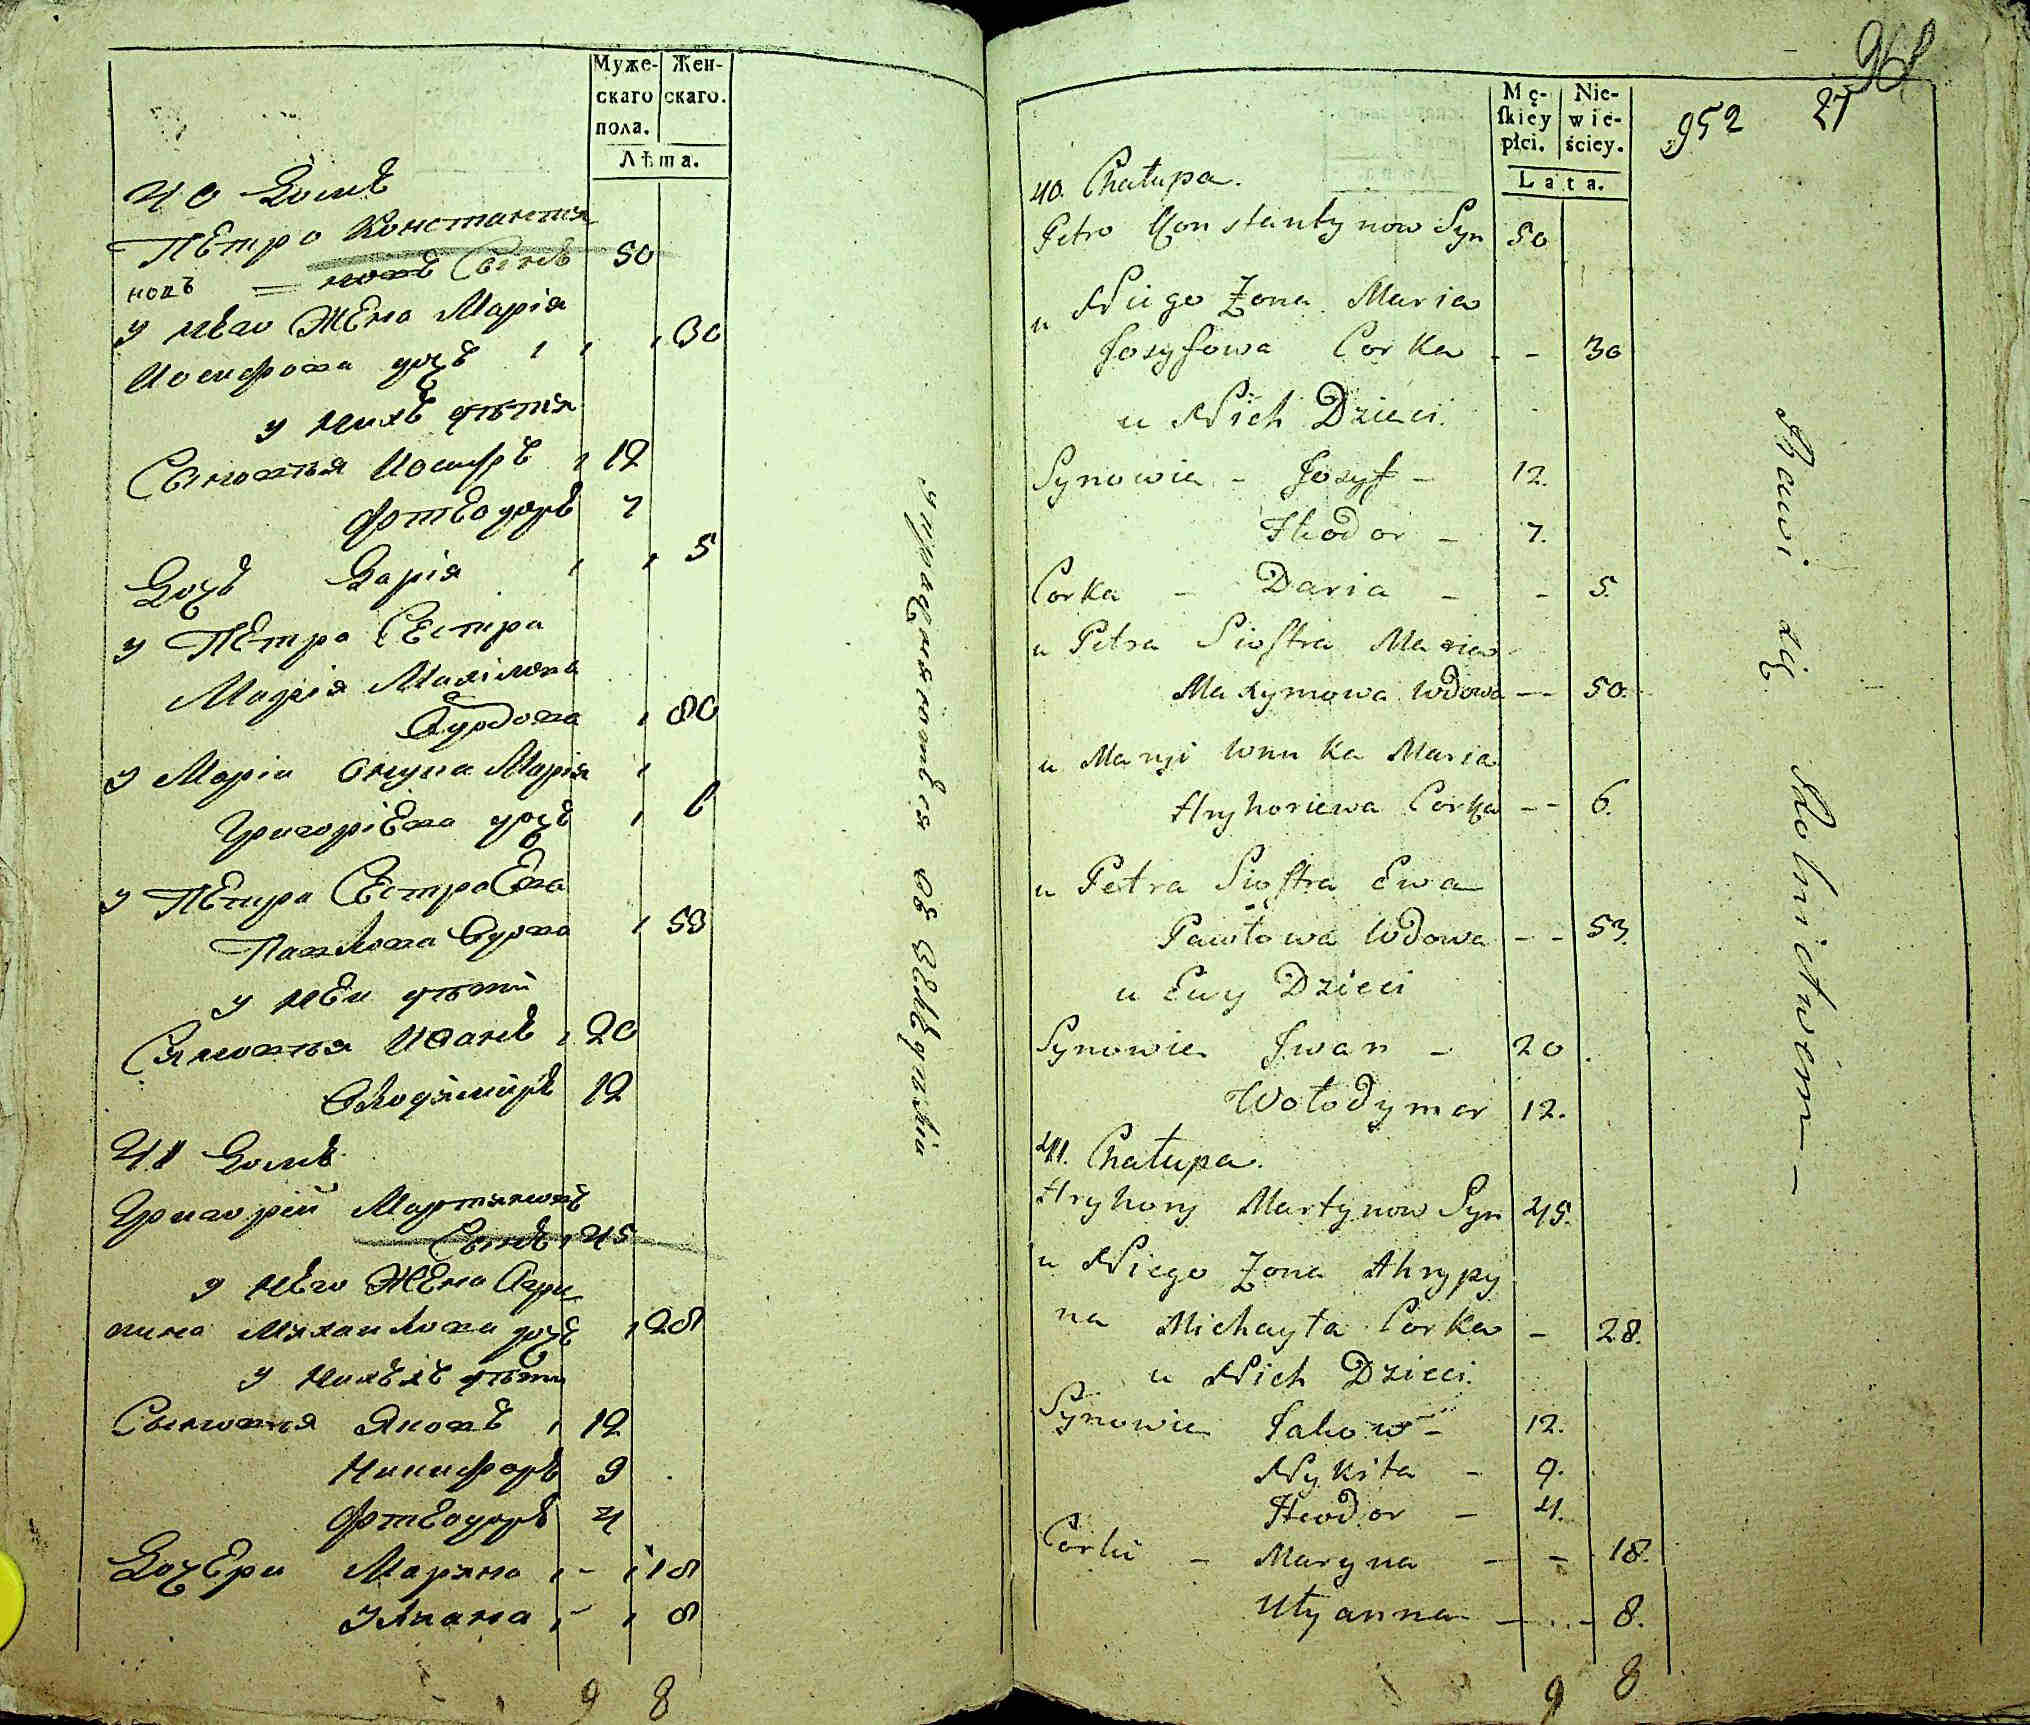 Муже-
скаго
пола.
Жен-
скаго.
Лѣта.
40 Домъ
Петро Константи
новъ Сынъ 50
у него Жена Марія
Иосифова дочъ 30
у нихъ дѣти
Сыновья Иосифъ 12
Фтеодоръ 7
Дочъ Дарія 5
у Петра Сестра
Марія
Вдова
у Маріи Внука Марія
Григоріева дочъ 6
у Петра Сестра Ева
Павлова Вдова 53
у неи дѣти
Сыновья Иванъ 20
Володимиръ 12
41 Домъ
Григорій Мартыновъ
Сынъ 45
у него Жена Агри
пина Михаилова дочъ 28
у нихъ дѣти
Сыновья Яковъ 12
Никифоръ 9
Фтеодоръ 4
Дочери Марина 18
Улиана 8
9 8
упражняется въ Земледелии
968
952 27
Mę-
skiey
płci.
Nie-
wie-
ściey.
Lata.
40. Chałupa.
Petro Konstantynow Syn 50
u Niego Żona Maria
Josyfowa Corka - - 30
u Nich Dzieci.
Synowie - Josyf - 12.
Fteodor - 7.
Corka - Daria - - 5.
u Petra Siostra Maria
Maxymowa Wdowa - - 50.
u Maryi Wnuka Maria
Hryhoriewa Corka - - 6.
u Petra Siostra Ewa
Pawłowa Wdowa - - 53.
u Ewy Dzieci
Synowie Iwan - 20
Wołodymer 12.
41. Chałupa.
Hryhory Martynow Syn 45.
u Niego Żona Ahrypy
na Michayła Corka - 28.
u Nich Dzieci.
Synowie Jakow - 12.
Nykita - 9.
Fteodor - 4.
Corki - Maryna - - 18.
Ulyanna - - 8.
9 8
Bawi się Rolnictwem -